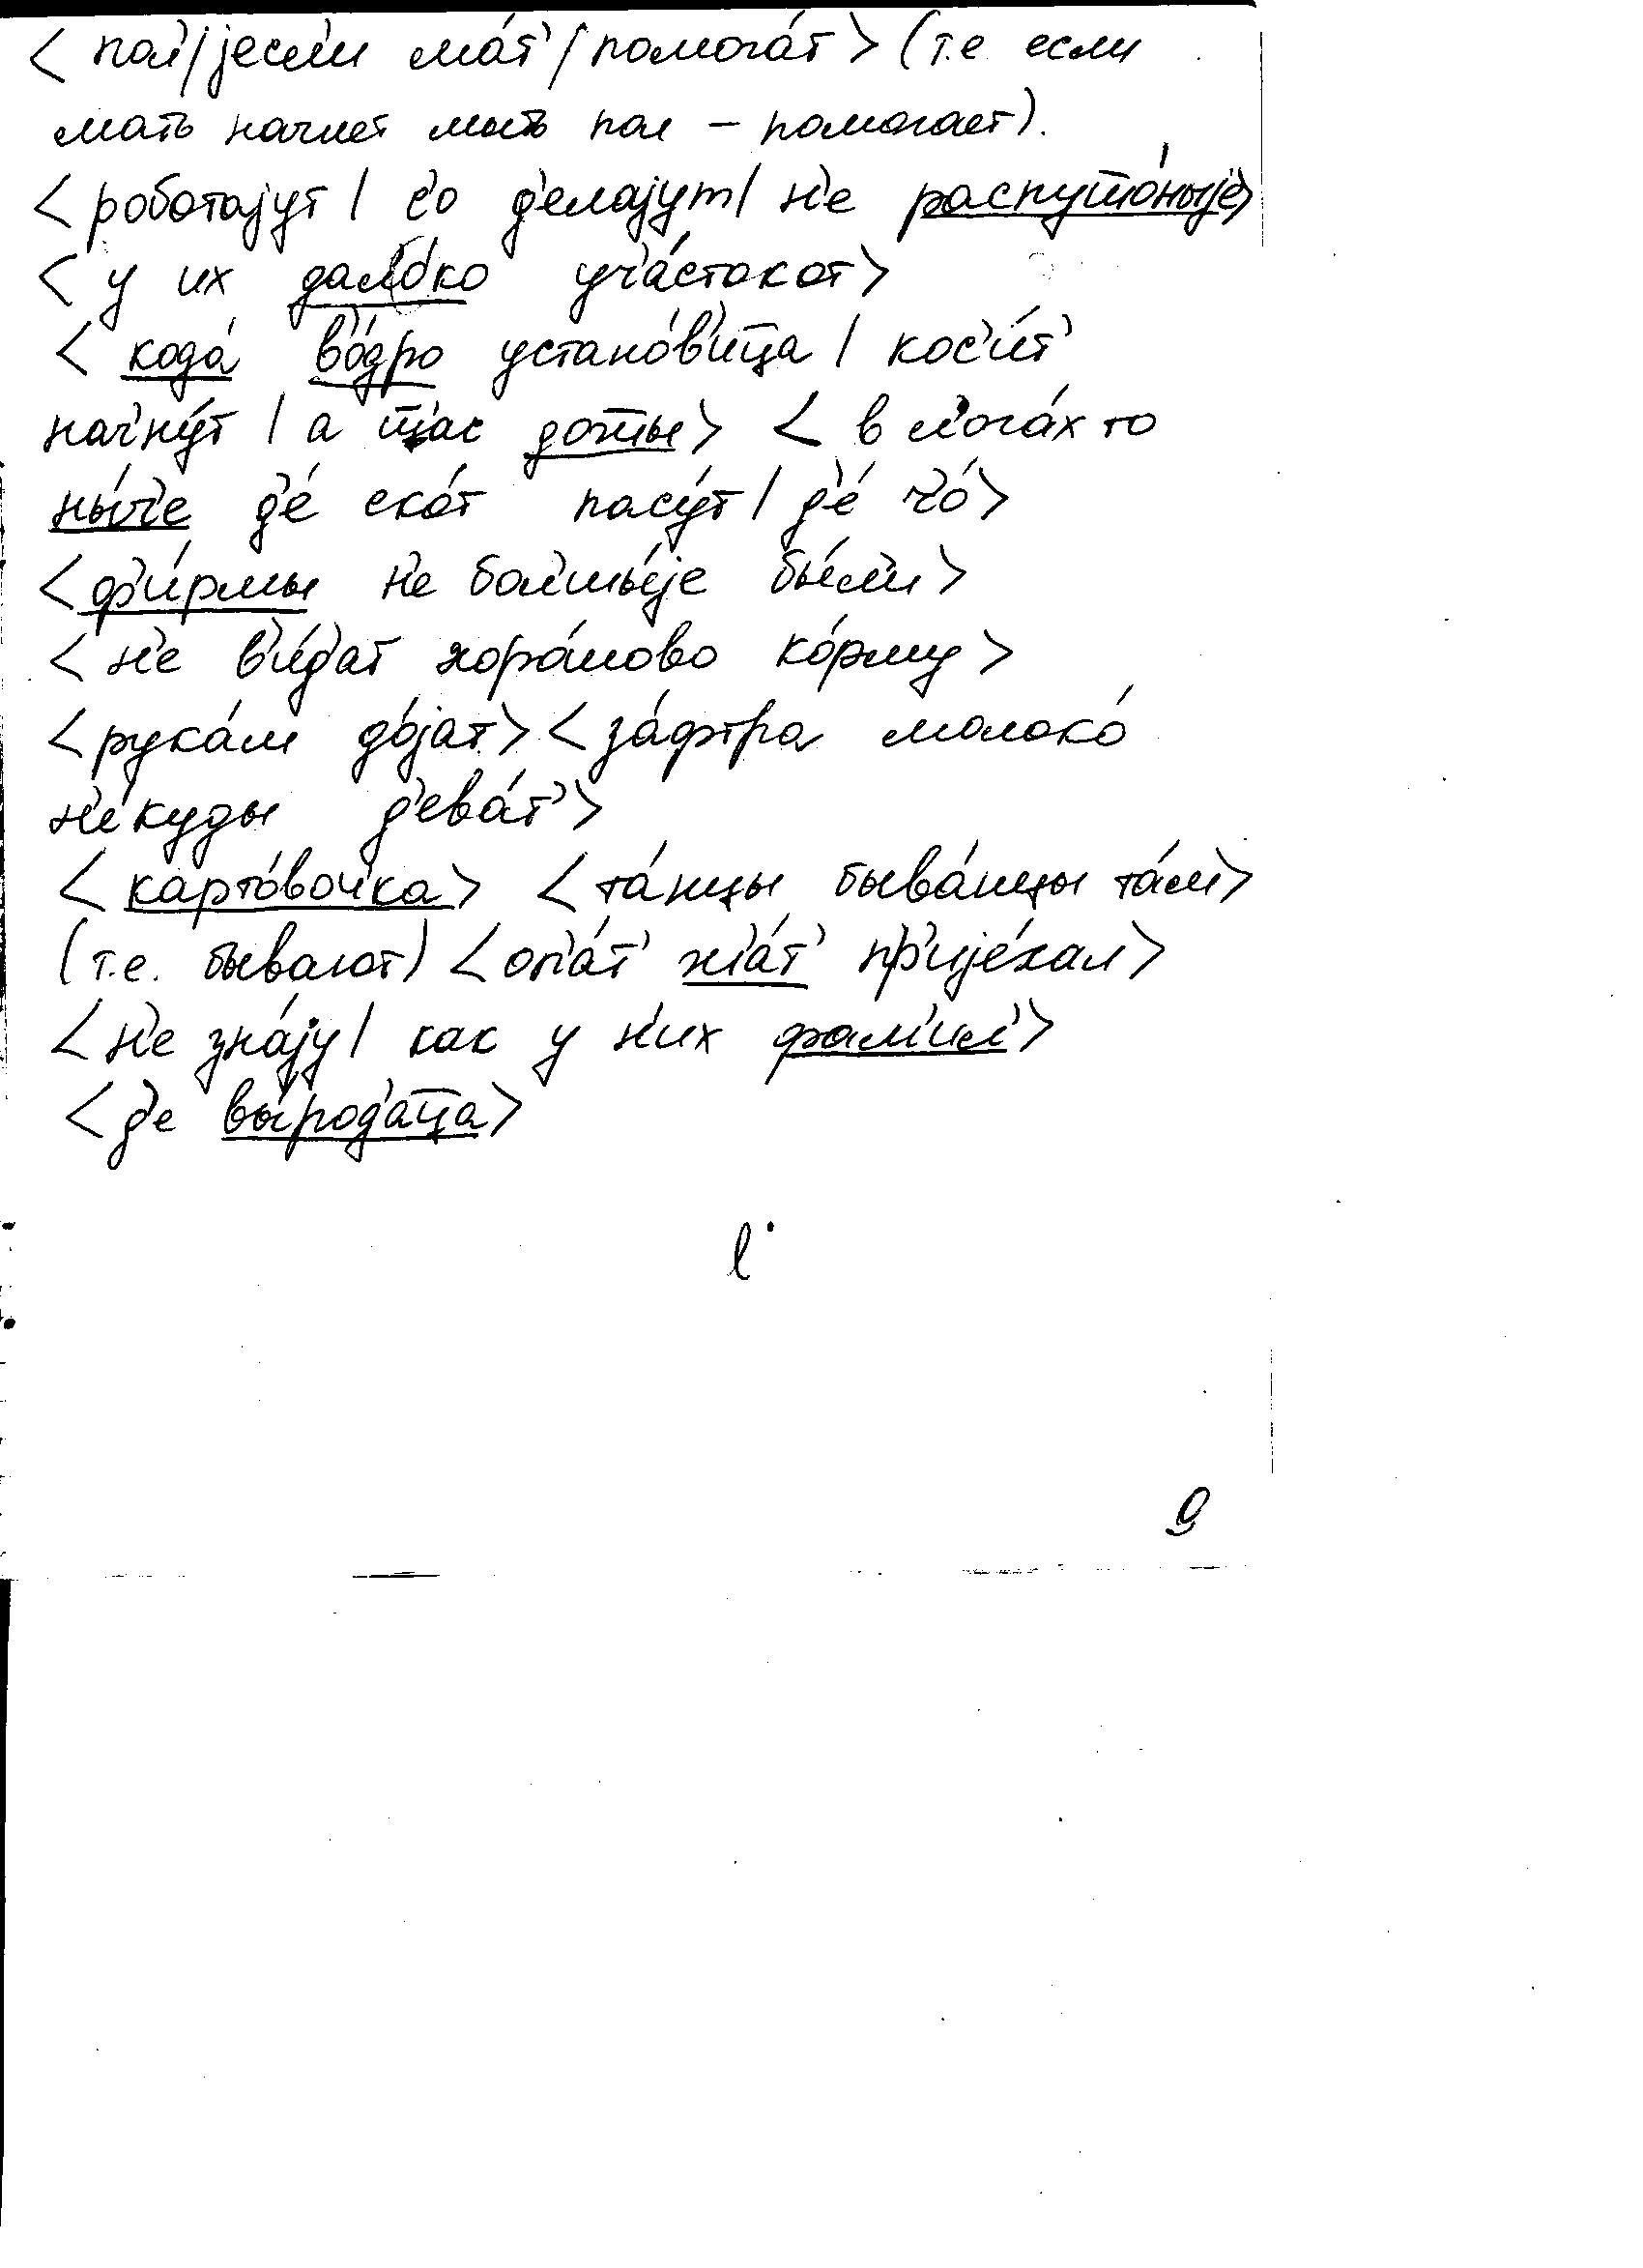 < пол'/jесл'и ма́т' / помога́т > (т.е если
мать начнет мыть пол – помогает).
< роботаjут / c'о д'елаjут / н'е распуто́ныjе >
< у их дал'о́ко уч'а́стокот >
< кода́ в'о́дро устано́в'ица / кос'и́т'
нач'ну́т / а щ'ас > < в лога́х то
ны́ч'е д'е́ ско́т пасу́т / д'е́ ч'о́ >
< ф'и́рмы н'е бол'шы́jе бы́л'и >
< н'е в'и́д'ат хоро́шово ко́рму >
< рука́м до́jат > < за́фтра молоко́
н'е́куды д'ева́т' >
< карто́воч'ка > < та́нцы быва́нцы та́м >
(т.е. бывают) < оп'а́т' з'а́т' пр'иjе́хал >
< н'е зна́jу / как у н'их фам'ил' >
< д'е вы́род'аца >